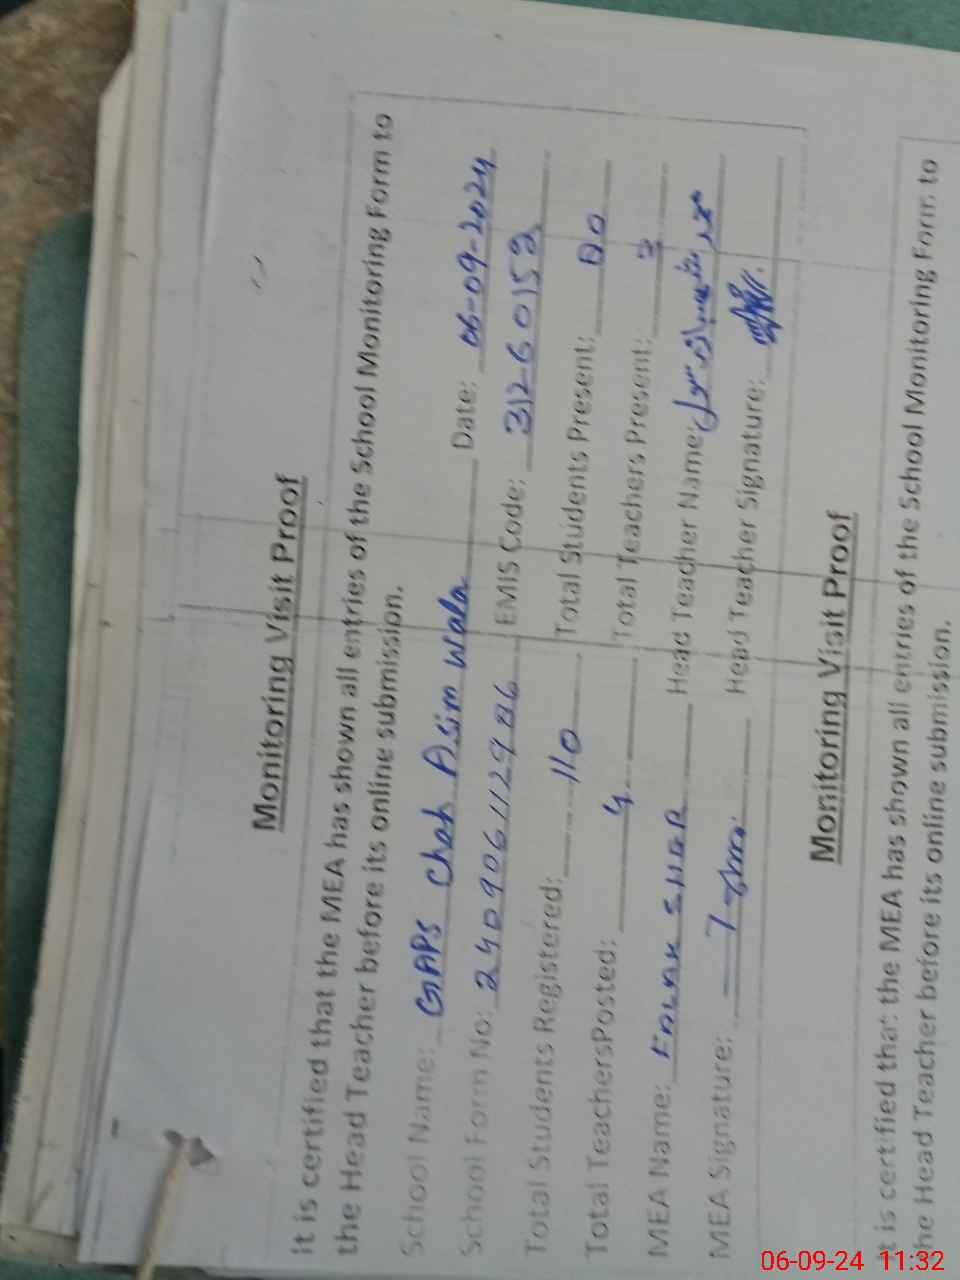 Monitoring Visit Proof
It is certified that the MEA has shown all entries of the School Monitoring Form to
the Head Teacher before its online submission.
School Name: GAPS Chah Asim Wala Date: 06-09-2024
School Form No: 24090611129 86 EMIS Code: 31260152
Total Students Registered: 110 Total Students Present:
Total TeachersPosted: 4 Total Teachers Present: 3
MEA Name: Head Teacher Name:
MEA Signature: Head Teacher Signature:
Monitoring Visit Proof
It is certified that the MEA has shown all entries of the School Monitoring Form to
the Head Teacher before its online submission.
06-09-24 11:32